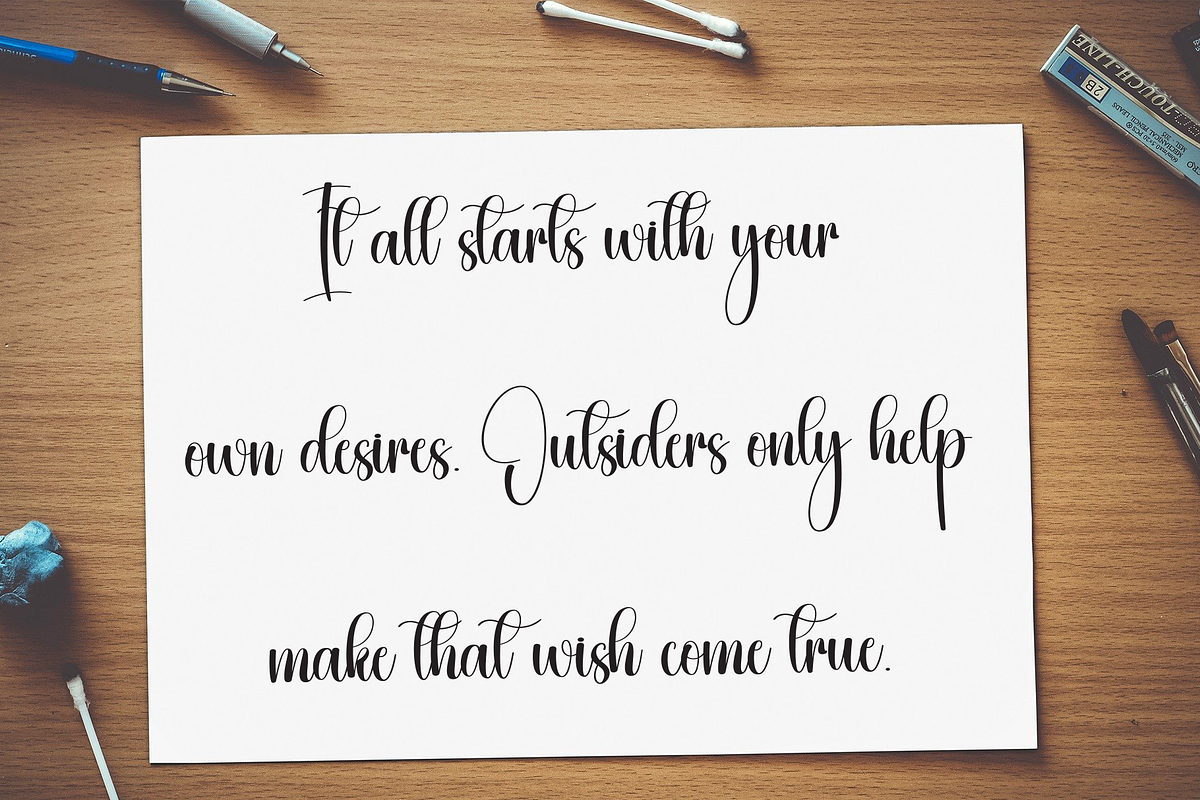 It all starts with your
own desires. Outsiders only help
make that wish come true.
TOUCH-LINE
2B
MECHANICAL PENCIL LEADS